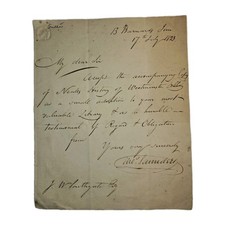 13 Barnards Inn
17th July 1823
My dear Sir
Accept the accompanying Copy
of Neales History of Westminster Abbey
as a small addition to your most
valuable Library & as a humble
testimonial of Regard & Obligation
from
Yours very sincerely
J W Southgate Esq